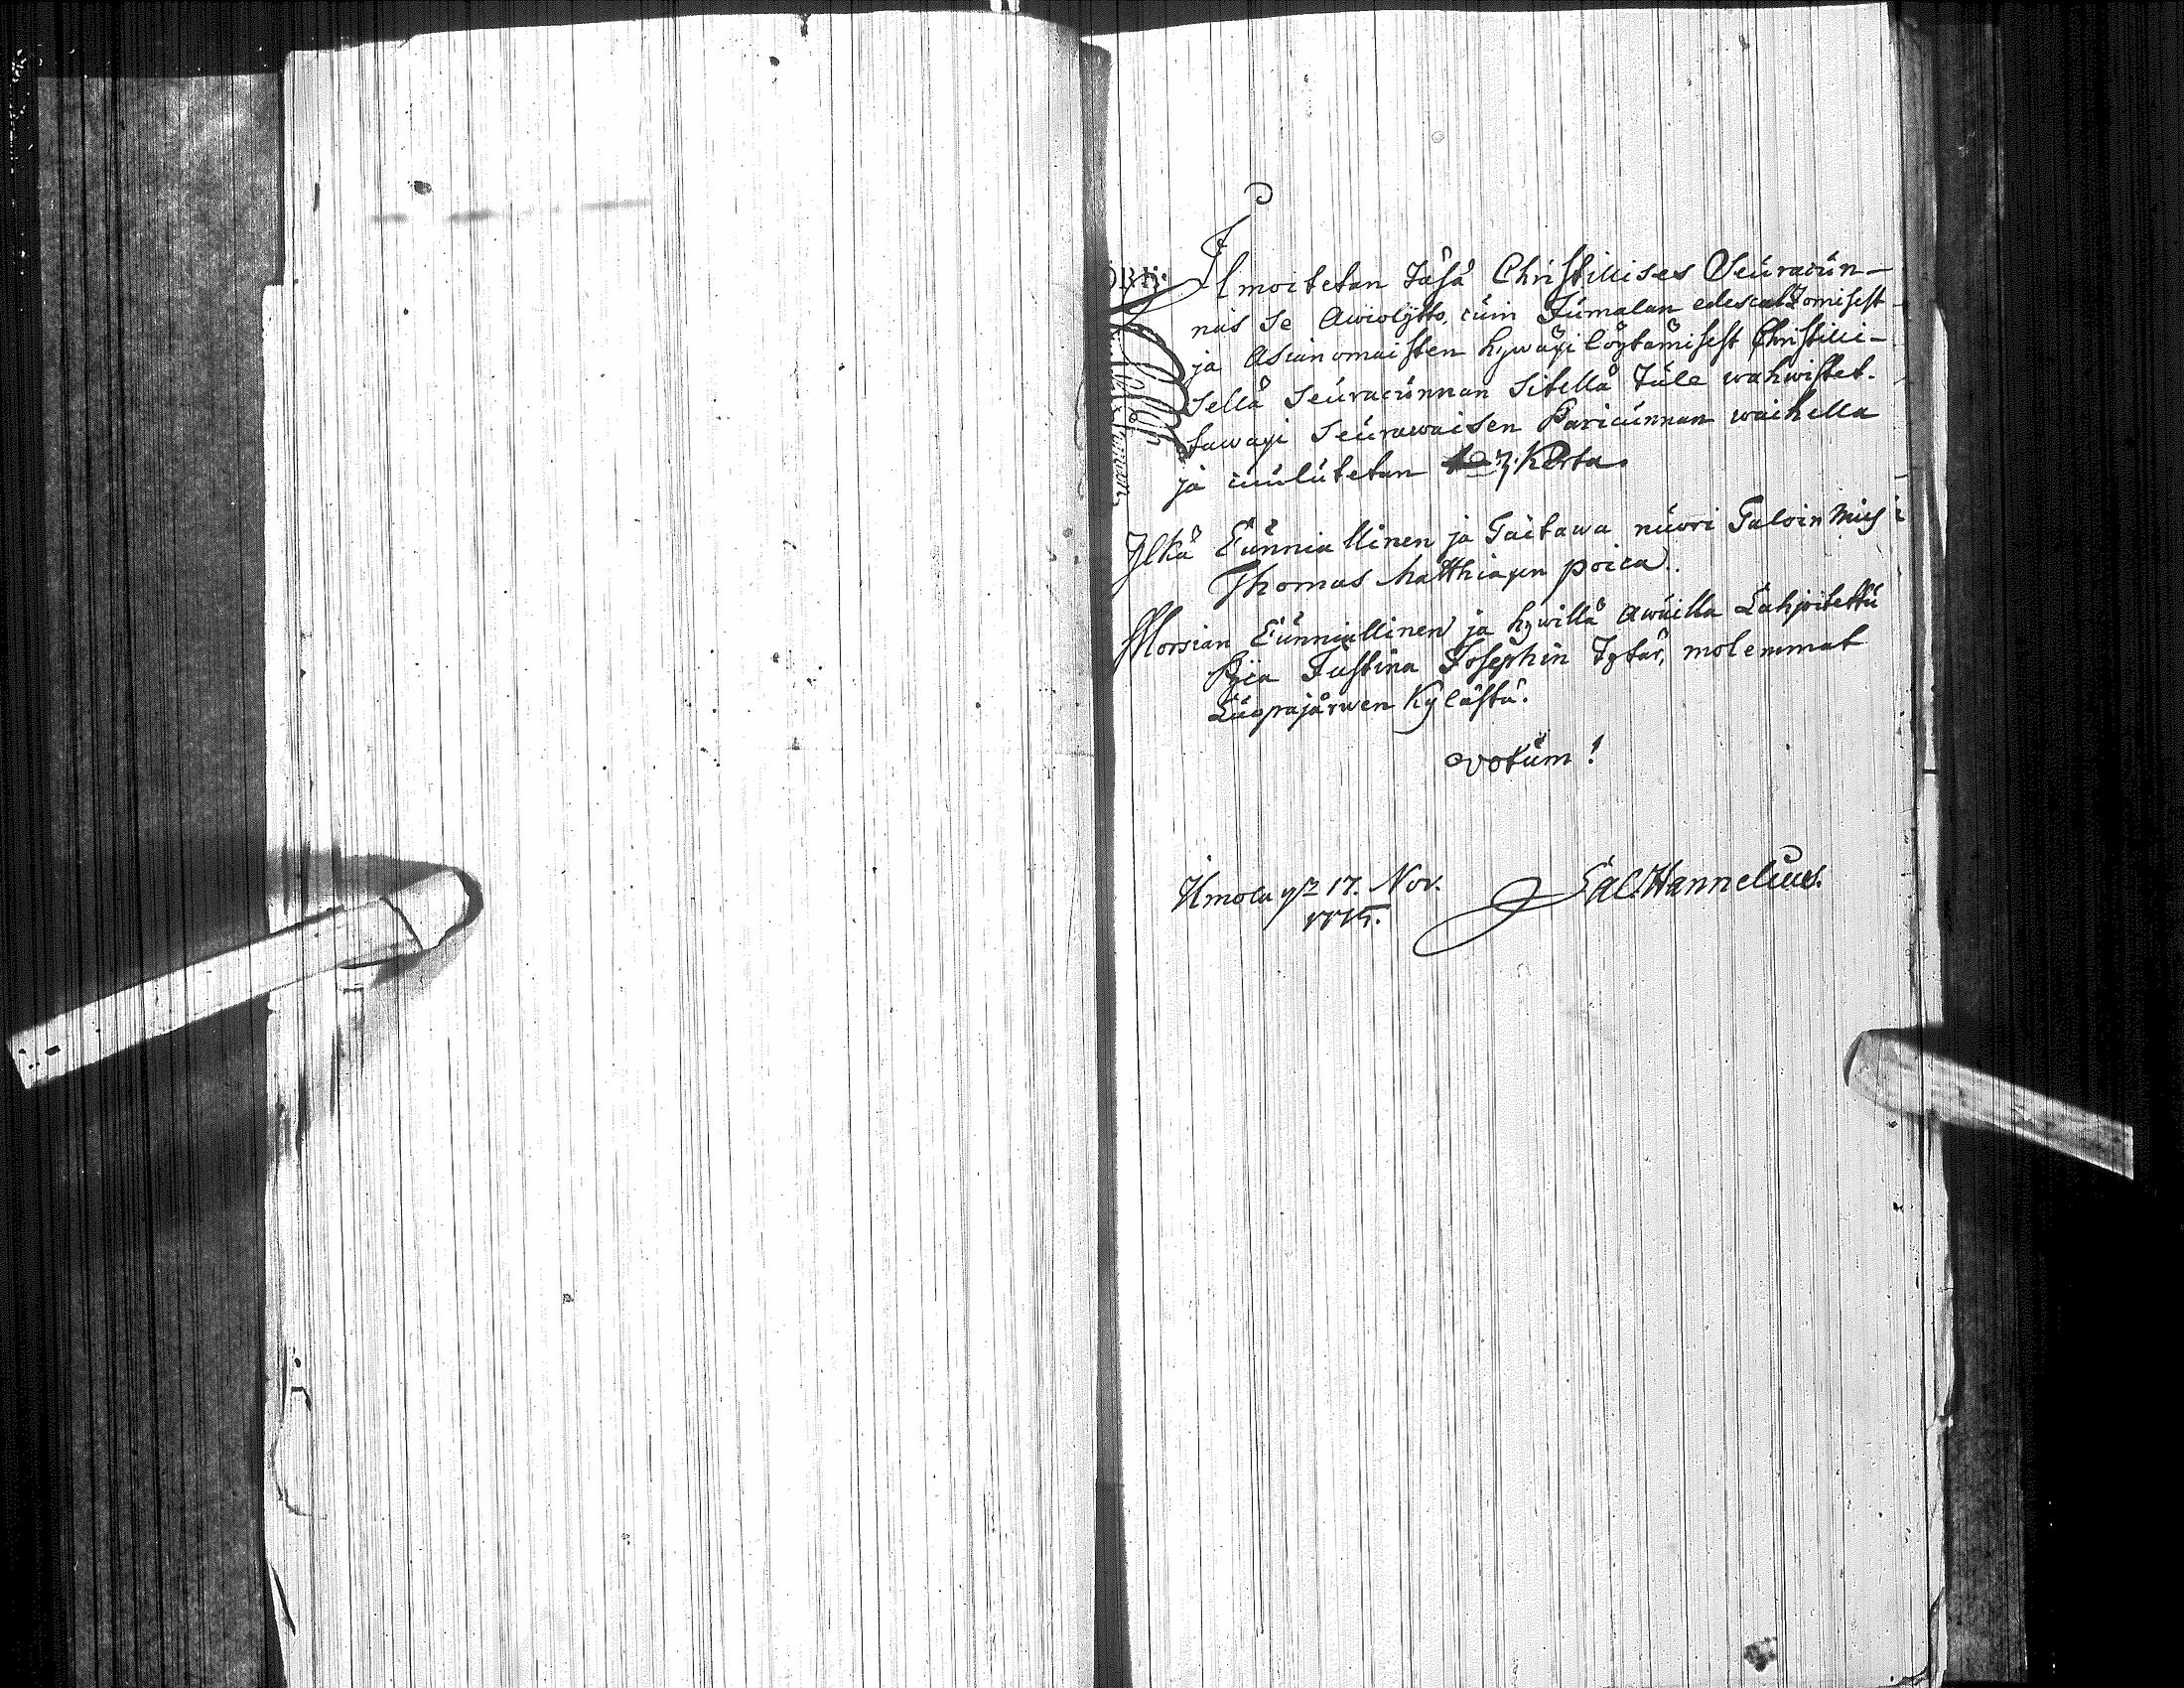 Ilmoitetan täsä Christillises Seuracun-
nas se Awioliitto, cuin Jumalan edescatzomisest
ja Asianomaisten hywäxi löytämisest Christilli-
sellä Seuracunnan sitellä tule wahwistet-
tawaxi seurawaisen Paricunnan waihella
ja cuulutetan 3. Kerta.
Ylkä Cunniallinen ja Taitawa nuori Taloin mies
Thomas Matthiaxen poica.
Morsian Cunniallinen ja hywillä Awuilla Lahjoitettu
Pijca Justina Josephin Tytär, molemmat
Luopajärwen Kylästä.
Votum!
Ilmola 17. Nov.
Sal. Hannelius.